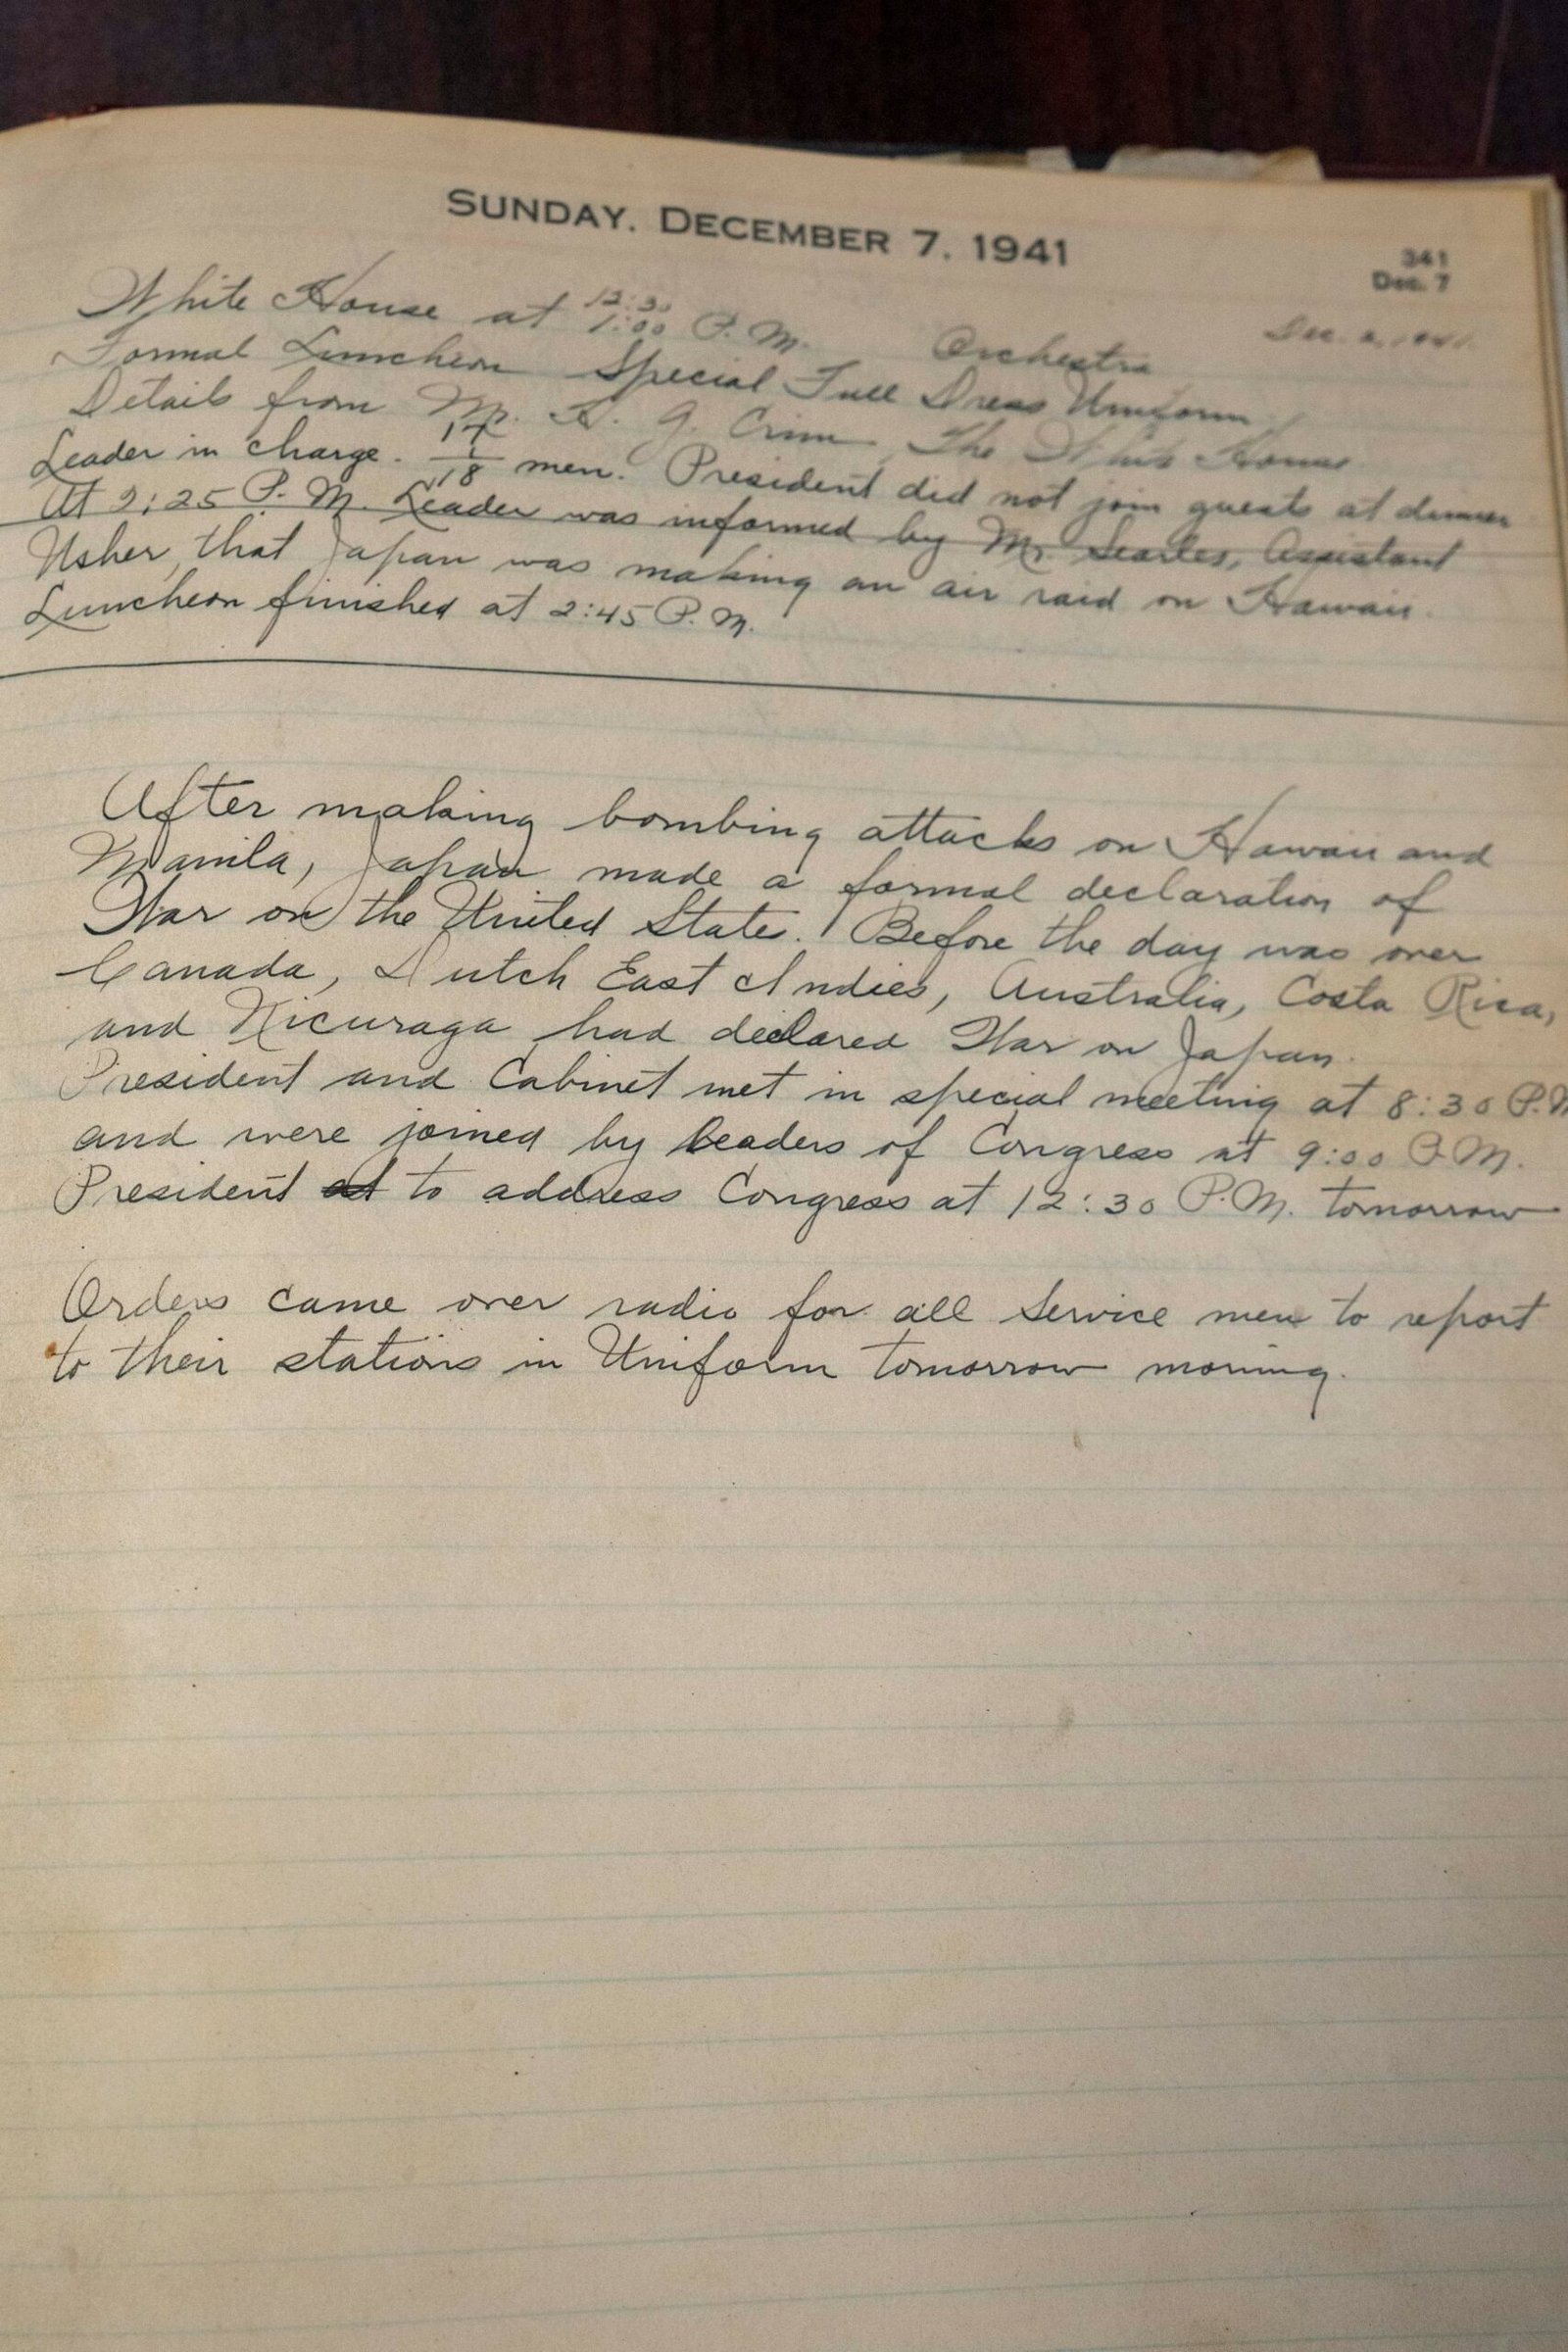 SUNDAY, DECEMBER 7, 1941
341
Dec. 7
White House at 12:30 1:00 P.M. Orchestra
Formal Luncheon Special Full Dress Uniform
Details from Mr. H. G. Crim, The White House
Leader in charge. 17 1 18 men. President did not join guests at dinner
At 2:25 P.M. Leader was informed by Mr. Searles, Assistant
Usher, that Japan was making an air raid on Hawaii.
Luncheon finished at 2:45 P.M.
After making bombing attacks on Hawaii and
Manila, Japan made a formal declaration of
War on the United States. Before the day was over
Canada, Dutch East Indies, Australia, Costa Rica,
and Nicuraga had declared War on Japan.
President and Cabinet met in special meeting at 8:30 P.M
and were joined by leaders of Congress at 9:00 P.M.
President to address Congress at 12:30 P.M. tomorrow
Orders came over radio for all Service men to report
to their stations in Uniform tomorrow morning.